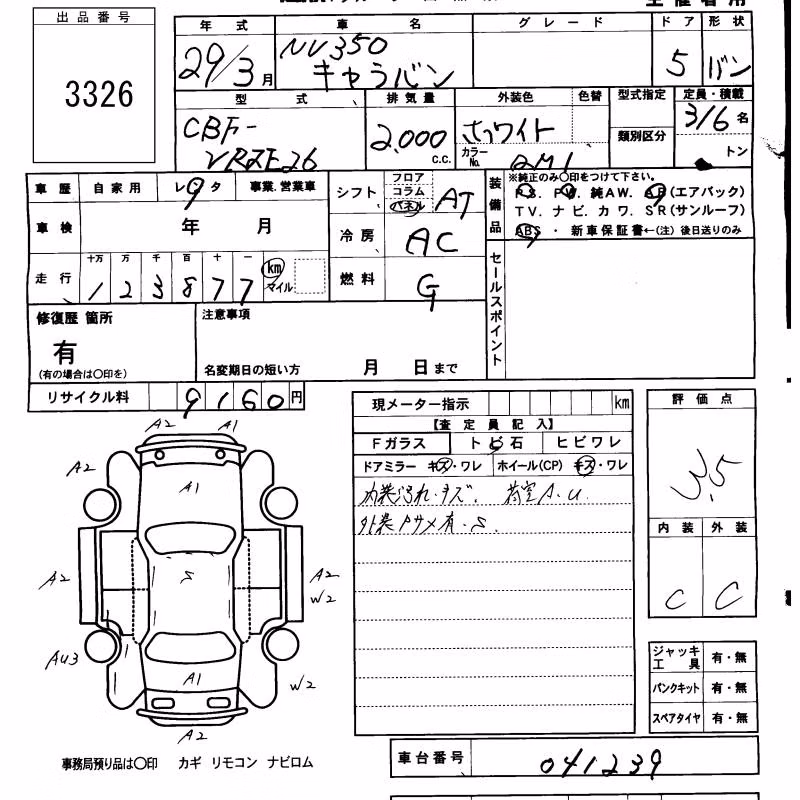 出品番号
3326
年式 車名 グレード ドア 形状
29/3月 NV350 キャラバン 5 バン
型式 排気量 外装色 色替 型式指定 定員・積載
CBF-VR2E26 2,000 C.C. ホワイト カラーNo. QM1 類別区分 3/6名 トン
車歴 自家用 レンタ 事業.営業車
車検 年 月
走行 十万 万 千 百 十 一
1 2 3 8 7 7 km マイル
シフト フロア コラム パネル AT
冷房 AC
燃料 G
装備品 ※純正のみ〇印をつけて下さい。
PS. PW. 純AW. AB(エアバック)
TV. ナビ. カワ. SR(サンルーフ)
ABS ・ 新車保証書←(注) 後日送りのみ
セールスポイント
修復歴 箇所
有
(有の場合は〇印を)
注意事項
名変期日の短い方 月 日まで
リサイクル料 9160円
現メーター指示 km
【査定員記入】
Fガラス トビ石 ヒビワレ
ドアミラー キズ・ワレ ホイール(CP) キズ・ワレ
内装汚れ・キズ、荷室A.U.
外装 有・S.
評価点
3.5
内装 外装
C C
A2 A1
A2
A1
A2
S
A2
W2
AU3
A1
W2
A2
ジャッキ工具 有・無
パンクキット 有・無
スペアタイヤ 有・無
事務局預り品は〇印 カギ リモコン ナビロム
車台番号 041239